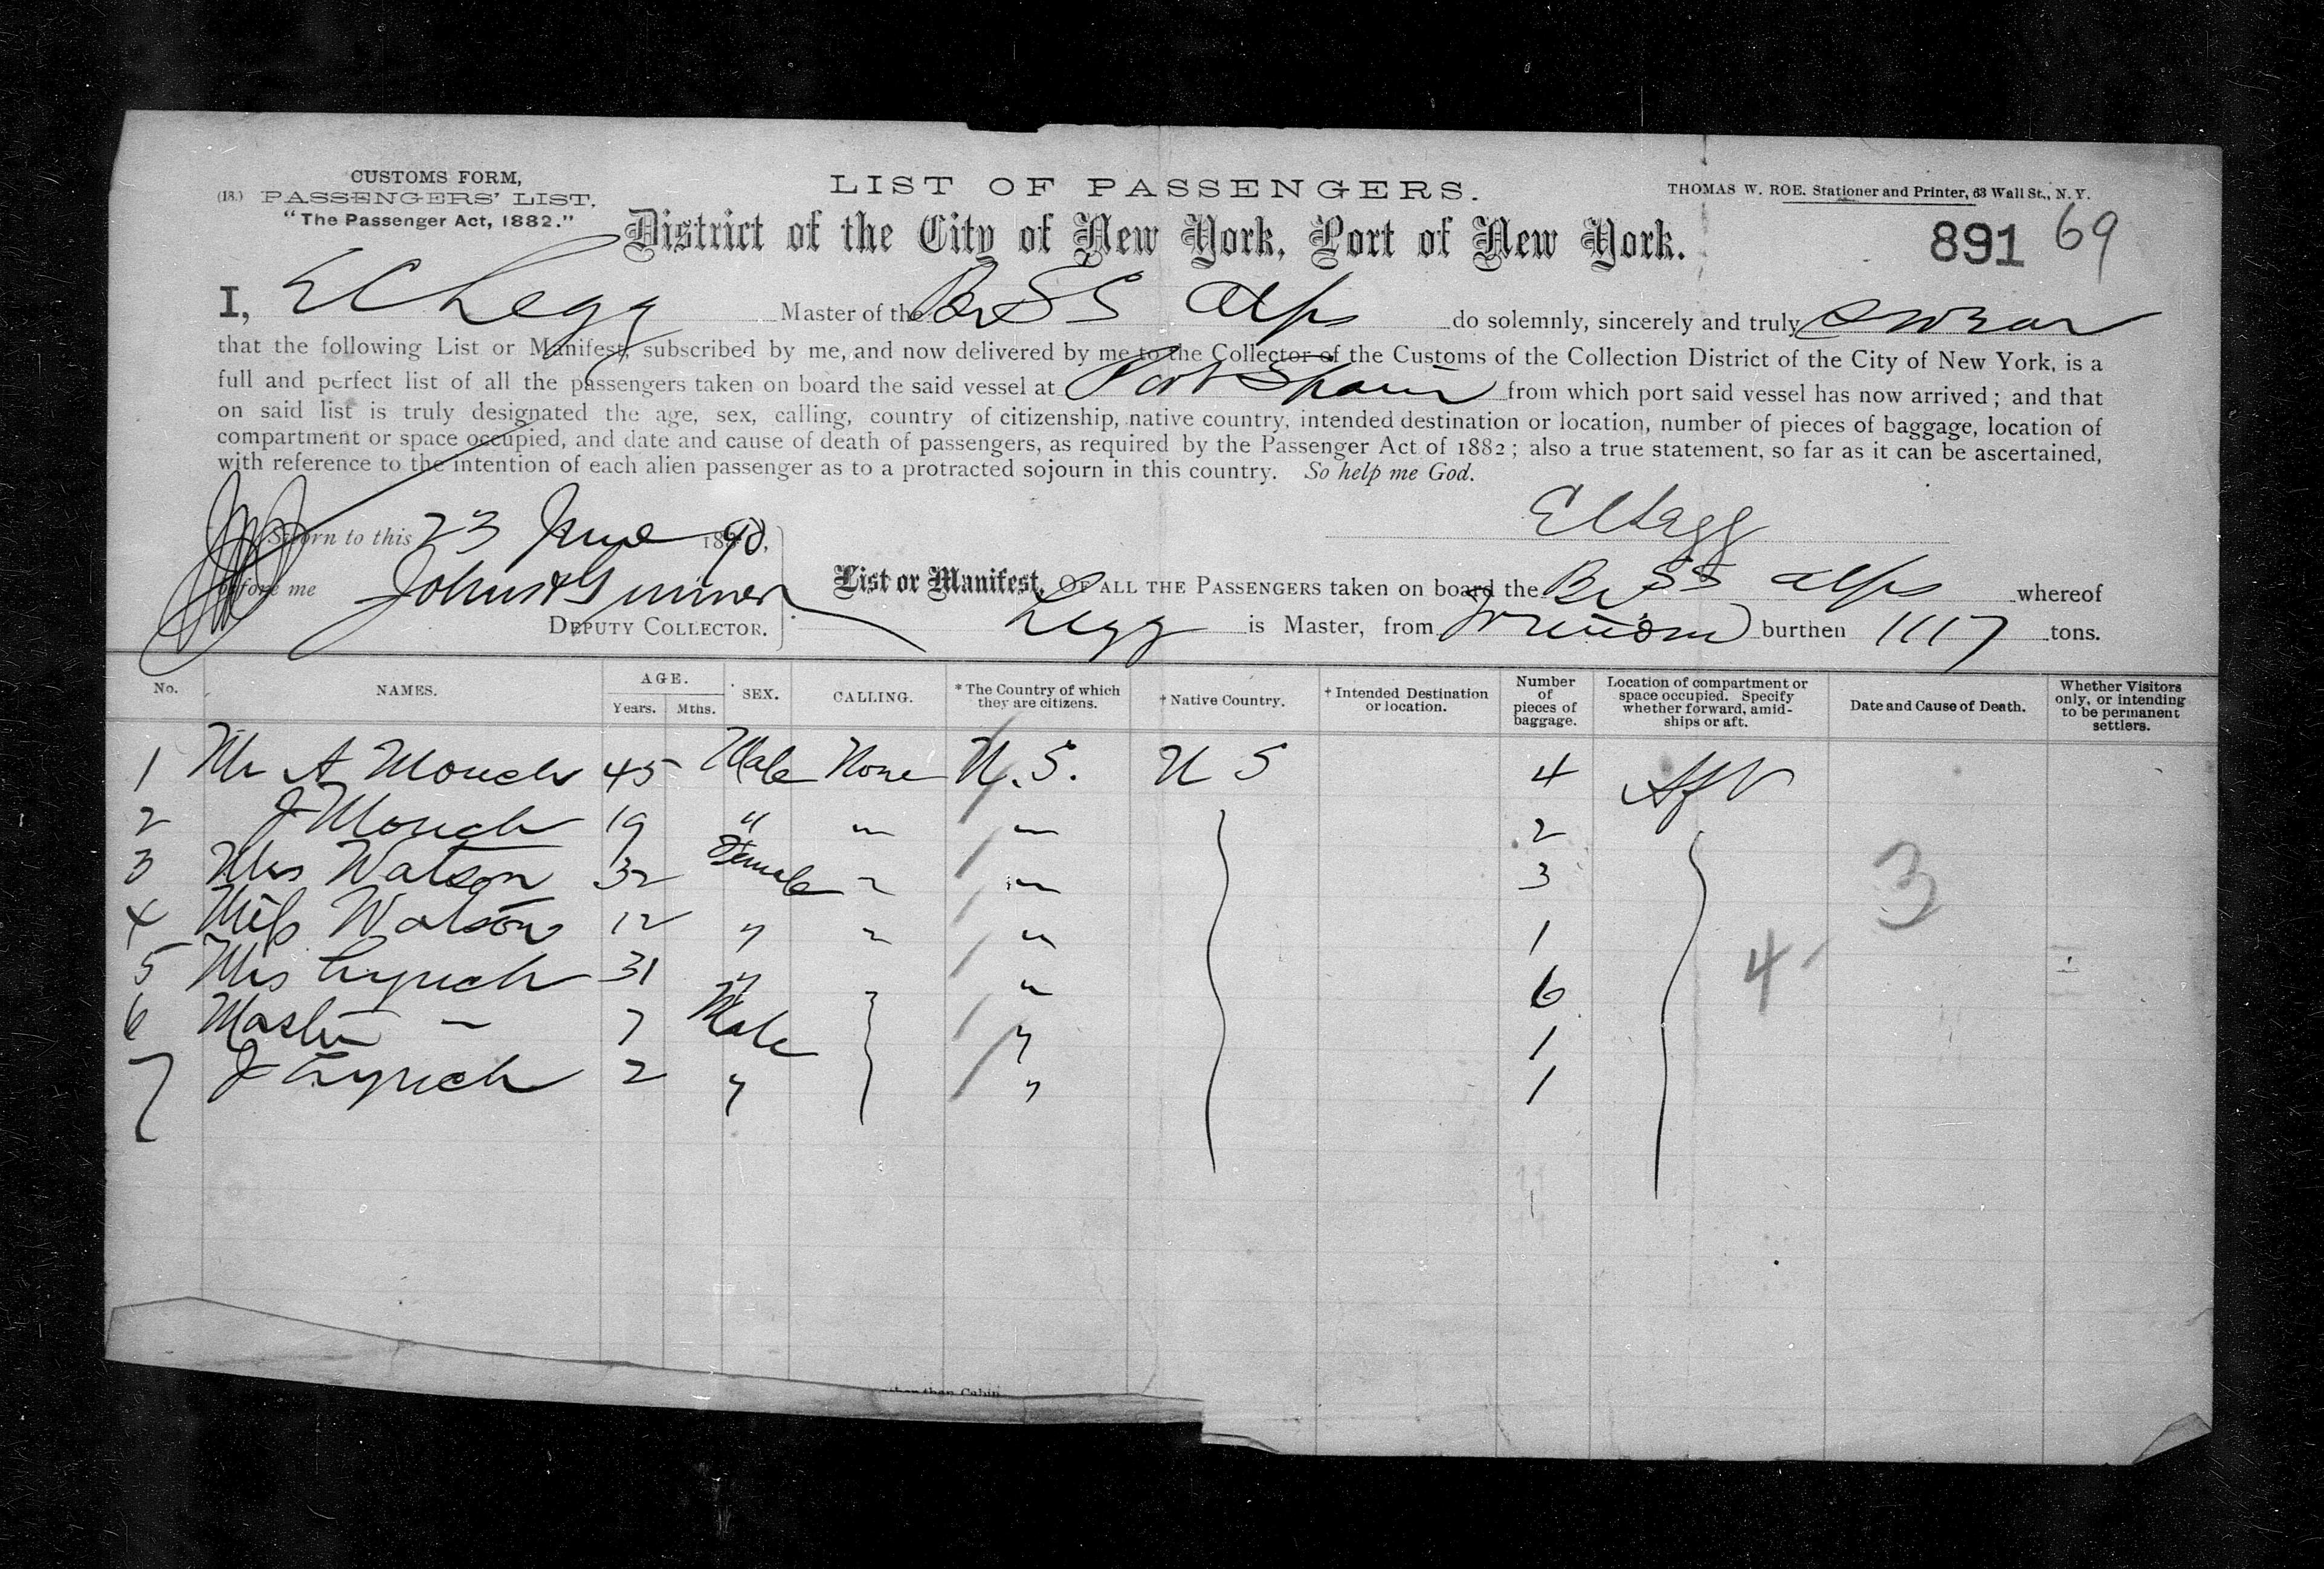 CUSTOMS FORM,
(18.) PASSENGERS' LIST.
"The Passenger Act, 1882."
LIST OF PASSENGERS.
THOMAS W. ROE. Stationer and Printer, 63 Wall St., N. Y.
District of the City of New York, Port of New York.
891 69
I, E C Legg Master of the Br SS Alps do solemnly, sincerely and truly swear
that the following List or Manifest, subscribed by me, and now delivered by me to the Collector of the Customs of the Collection District of the City of New York, is a
full and perfect list of all the passengers taken on board the said vessel at Port Spain from which port said vessel has now arrived; and that
on said list is truly designated the age, sex, calling, country of citizenship, native country, intended destination or location, number of pieces of baggage, location of
compartment or space occupied, and date and cause of death of passengers, as required by the Passenger Act of 1882; also a true statement, so far as it can be ascertained,
with reference to the intention of each alien passenger as to a protracted sojourn in this country. So help me God.
Sworn to this 23 June 1890,
E C Legg
before me
DEPUTY COLLECTOR.
List or Manifest, OF ALL THE PASSENGERS taken on board the Br SS Alps whereof
Legg is Master, from burthen 1117 tons.
No. NAMES. AGE. Years. Mths. SEX. CALLING. * The Country of which they are citizens. † Native Country. † Intended Destination or location. Number of pieces of baggage. Location of compartment or space occupied. Specify whether forward, amidships or aft. Date and Cause of Death. Whether Visitors only, or intending to be permanent settlers.
1 Mr A Mouch 45 Male None U.S. U S 4 Aft
2 J Mouch 19 " " " 2
3 Mrs Watson 32 Female " " 3
4 Miss Watson 12 " " " 1
5 Mrs Lynch 31 " " 6
6 Master — 7 Male " 1
7 J Lynch 2 " " 1
3
4
other than Cabin